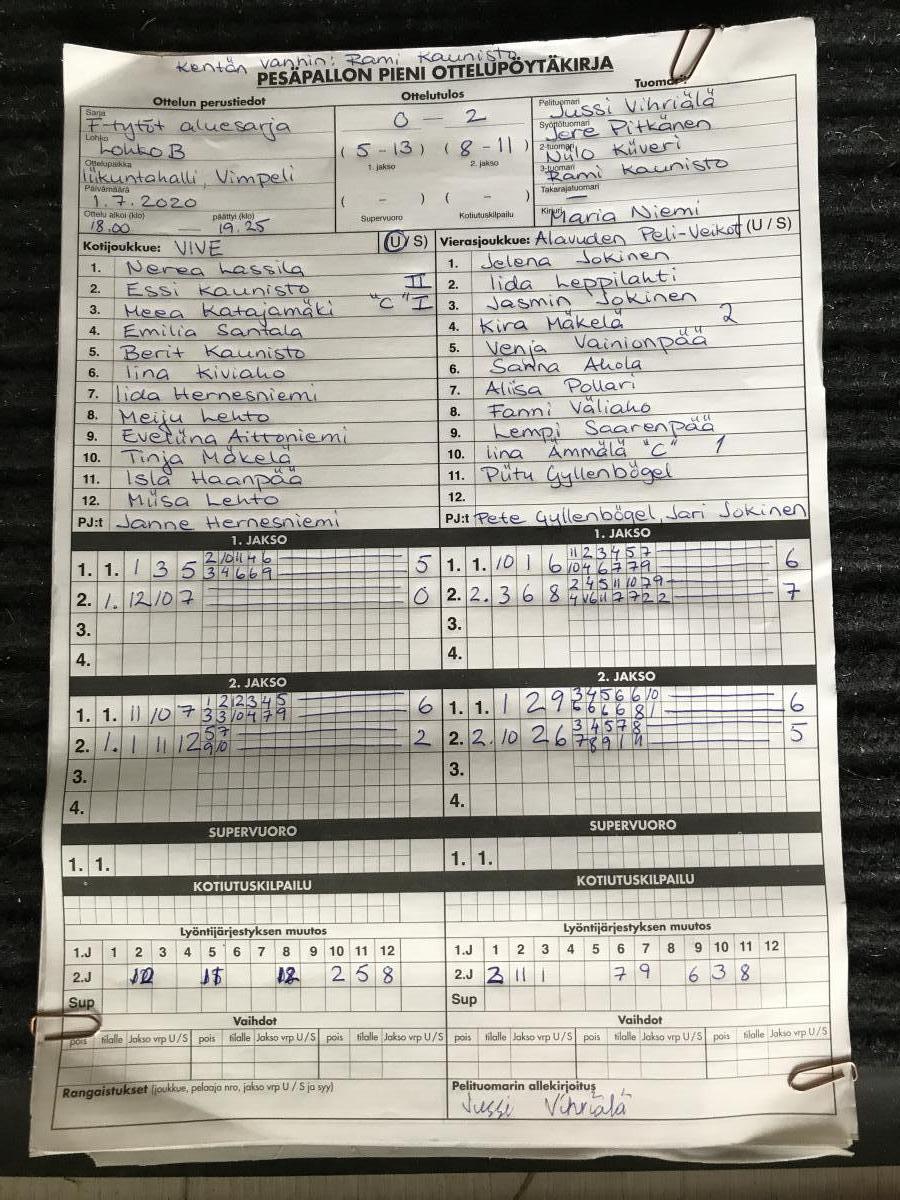 Kentän vanhin: Rami Kaunisto
PESÄPALLON PIENI OTTELUPÖYTÄKIRJA
Ottelun perustiedot
Sarja
F-tytöt aluesarja
Lohko
Lohko B
Ottelupaikka
liikuntahalli, Vimpeli
Päivämäärä
1.7.2020
Ottelu alkoi (klo) päättyi (klo)
18.00 — 19.25
Ottelutulos
0 - 2
(5-13) (8-11)
1. jakso 2. jakso
( - ) ( - )
Supervuoro Kotiutuskilpailu
Tuomarit
Pelituomari
Jussi Vihriälä
Syöttötuomari
Jere Pitkänen
2-tuomari
Niilo Kiiveri
3-tuomari
Rami Kaunisto
Takarajatuomari
—
Kirjuri
Maria Niemi
Kotijoukkue: VIVE (U/S)
1. Nerea Lassila
2. Essi Kaunisto II
3. Meea Katajamäki "C" I
4. Emilia Santala
5. Berit Kaunisto
6. Iina Kiviaho
7. Iida Hernesniemi
8. Meiju Lehto
9. Eveliina Aittoniemi
10. Tinja Mäkelä
11. Isla Haanpää
12. Miisa Lehto
PJ:t Janne Hernesniemi
Vierasjoukkue: Alavuden Peli-Veikot (U / S)
1. Jelena Jokinen
2. Iida Leppilahti
3. Jasmin Jokinen
4. Kira Mäkelä 2
5. Venja Vainionpää
6. Sanna Ahola
7. Aliisa Pollari
8. Fanni Väliaho
9. Lempi Saarenpää
10. Iina Ämmälä "C" 1
11. Piitu Gyllenbögel
12.
PJ:t Pete Gyllenbögel, Jari Jokinen
1. JAKSO
1. 1. 1 3 5 2 10 11 4 6 5
3 4 6 6 9
2. 1. 12 10 7 0
3.
4.
1. JAKSO
1. 1. 10 1 6 11 2 3 4 5 7 6
10 4 6 7 7 9
2. 2. 3 6 8 2 4 5 11 10 7 9 7
3.
4.
2. JAKSO
1. 1. 11 10 7 1 2 12 3 4 5 6
3 3 10 4 7 9
2. 1. 1 11 12 5 7 2
9 10
3.
4.
2. JAKSO
1. 1. 1 2 9 3 4 5 6 6 10 6
6 6 6 8 1
2. 2. 10 2 6 3 4 5 7 8 5
7 8 9 1 11
3.
4.
SUPERVUORO
1. 1.
SUPERVUORO
1. 1.
KOTIUTUSKILPAILU
KOTIUTUSKILPAILU
Lyöntijärjestyksen muutos
1.J 1 2 3 4 5 6 7 8 9 10 11 12
2.J 12 2 5 8
Sup
Lyöntijärjestyksen muutos
1.J 1 2 3 4 5 6 7 8 9 10 11 12
2.J 2 11 1 7 9 6 3 8
Sup
Vaihdot
pois tilalle Jakso vrp U/S pois tilalle Jakso vrp U/S pois tilalle Jakso vrp U/S
Vaihdot
pois tilalle Jakso vrp U/S pois tilalle Jakso vrp U/S pois tilalle Jakso vrp U/S
Rangaistukset (joukkue, pelaaja nro, jakso vrp U / S ja syy)
Pelituomarin allekirjoitus
Jussi Vihriälä